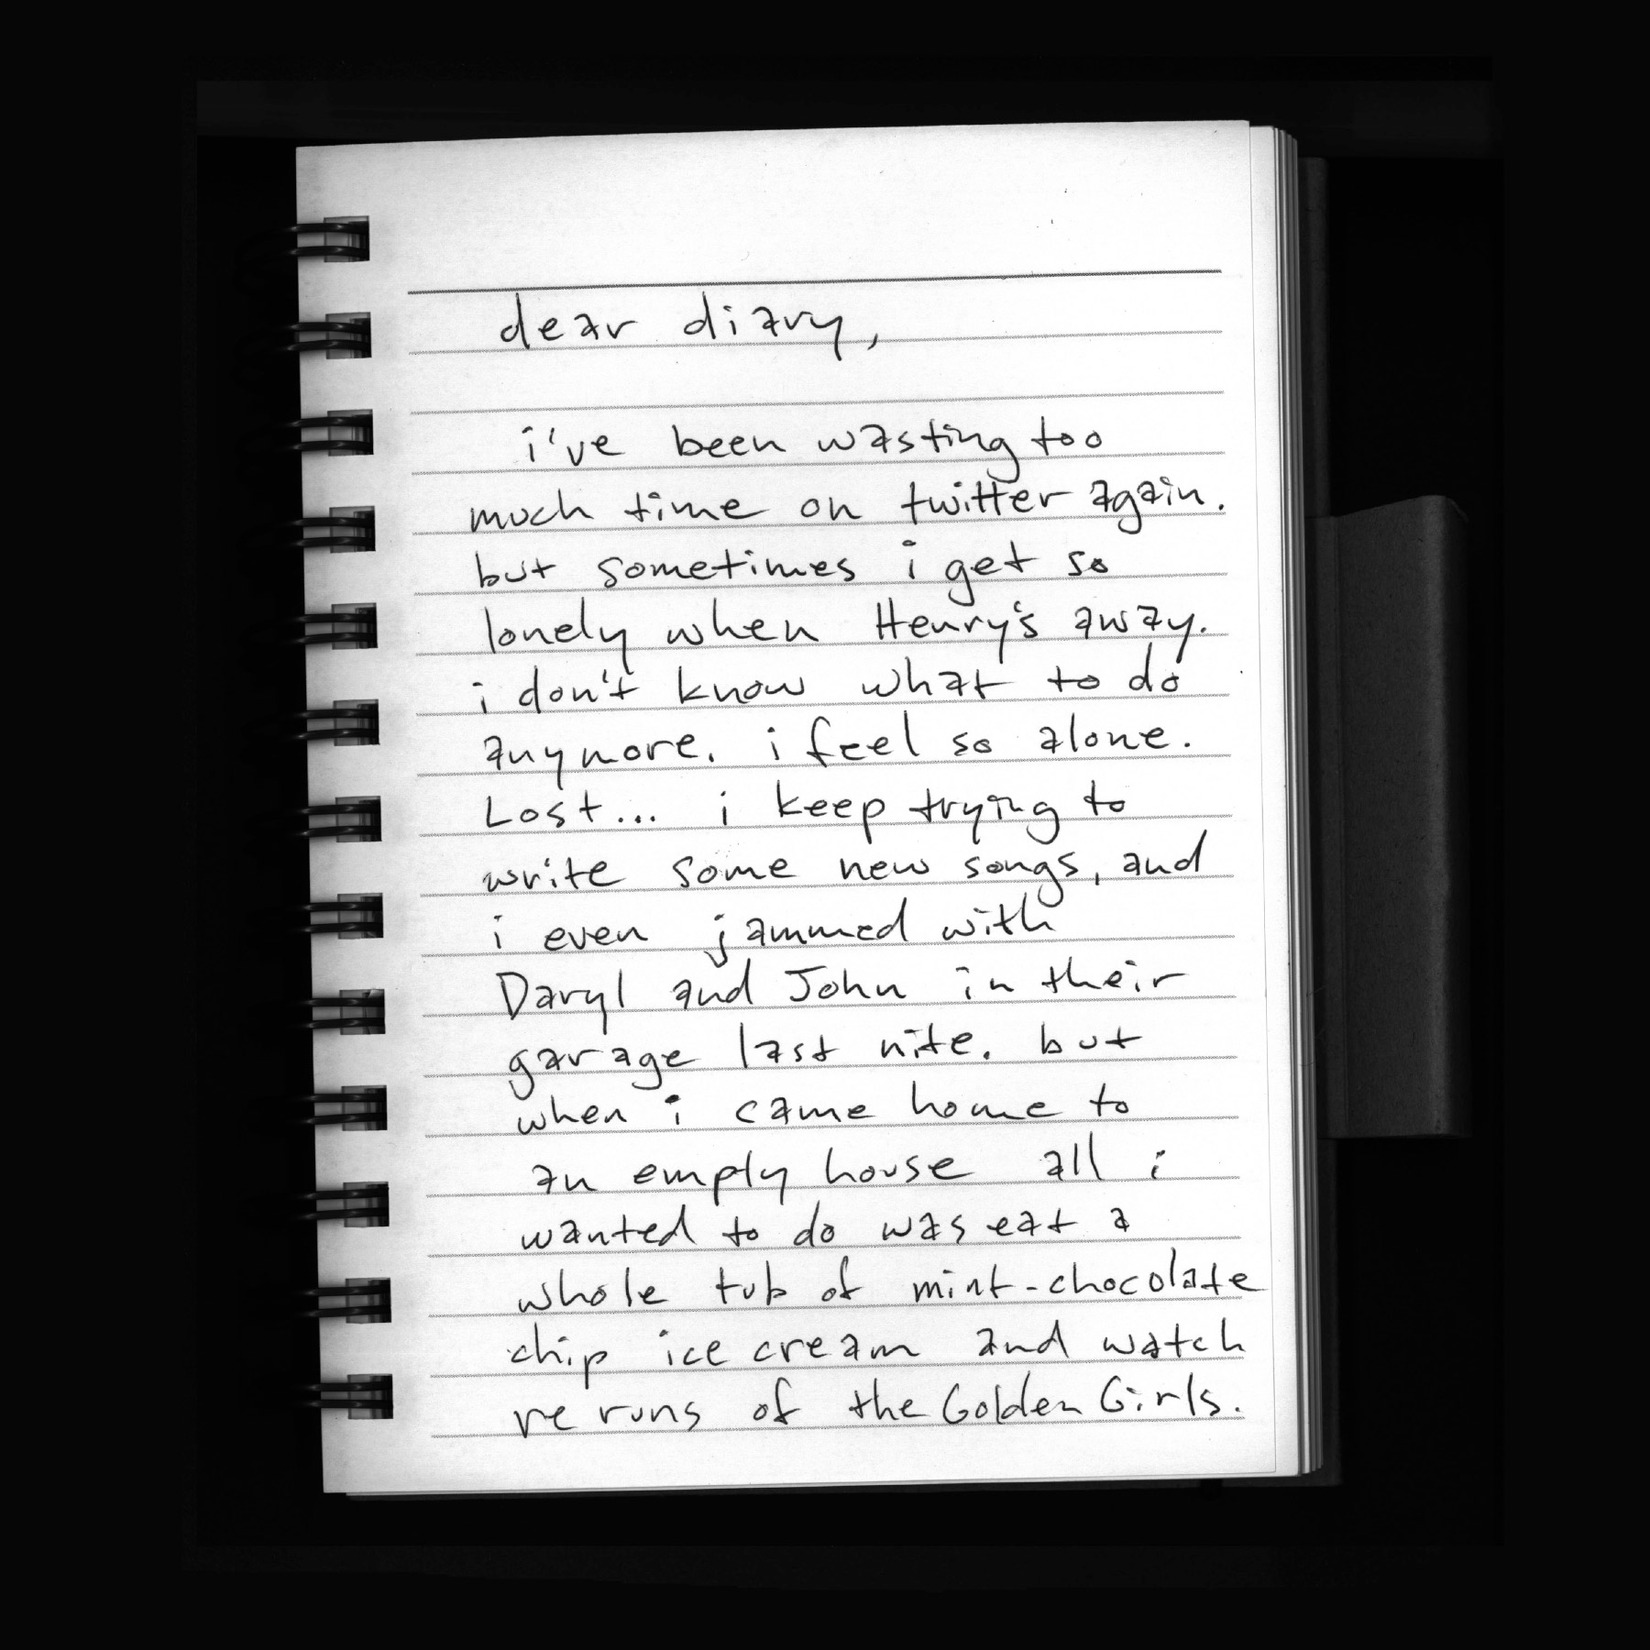 dear diary,
i've been wasting too
much time on twitter again.
but sometimes i get so
lonely when Henry's away.
i don't know what to do
anymore. i feel so alone.
Lost... i keep trying to
write some new songs, and
i even jammed with
Daryl and John in their
garage last nite. but
when i came home to
an empty house all i
wanted to do was eat a
whole tub of mint-chocolate
chip ice cream and watch
reruns of the Golden Girls.